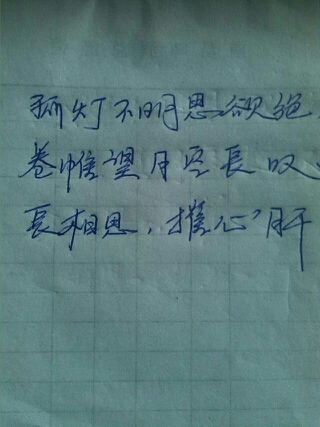 孤灯不明思欲绝.
卷帷望月空長叹
長相思，摧心肝